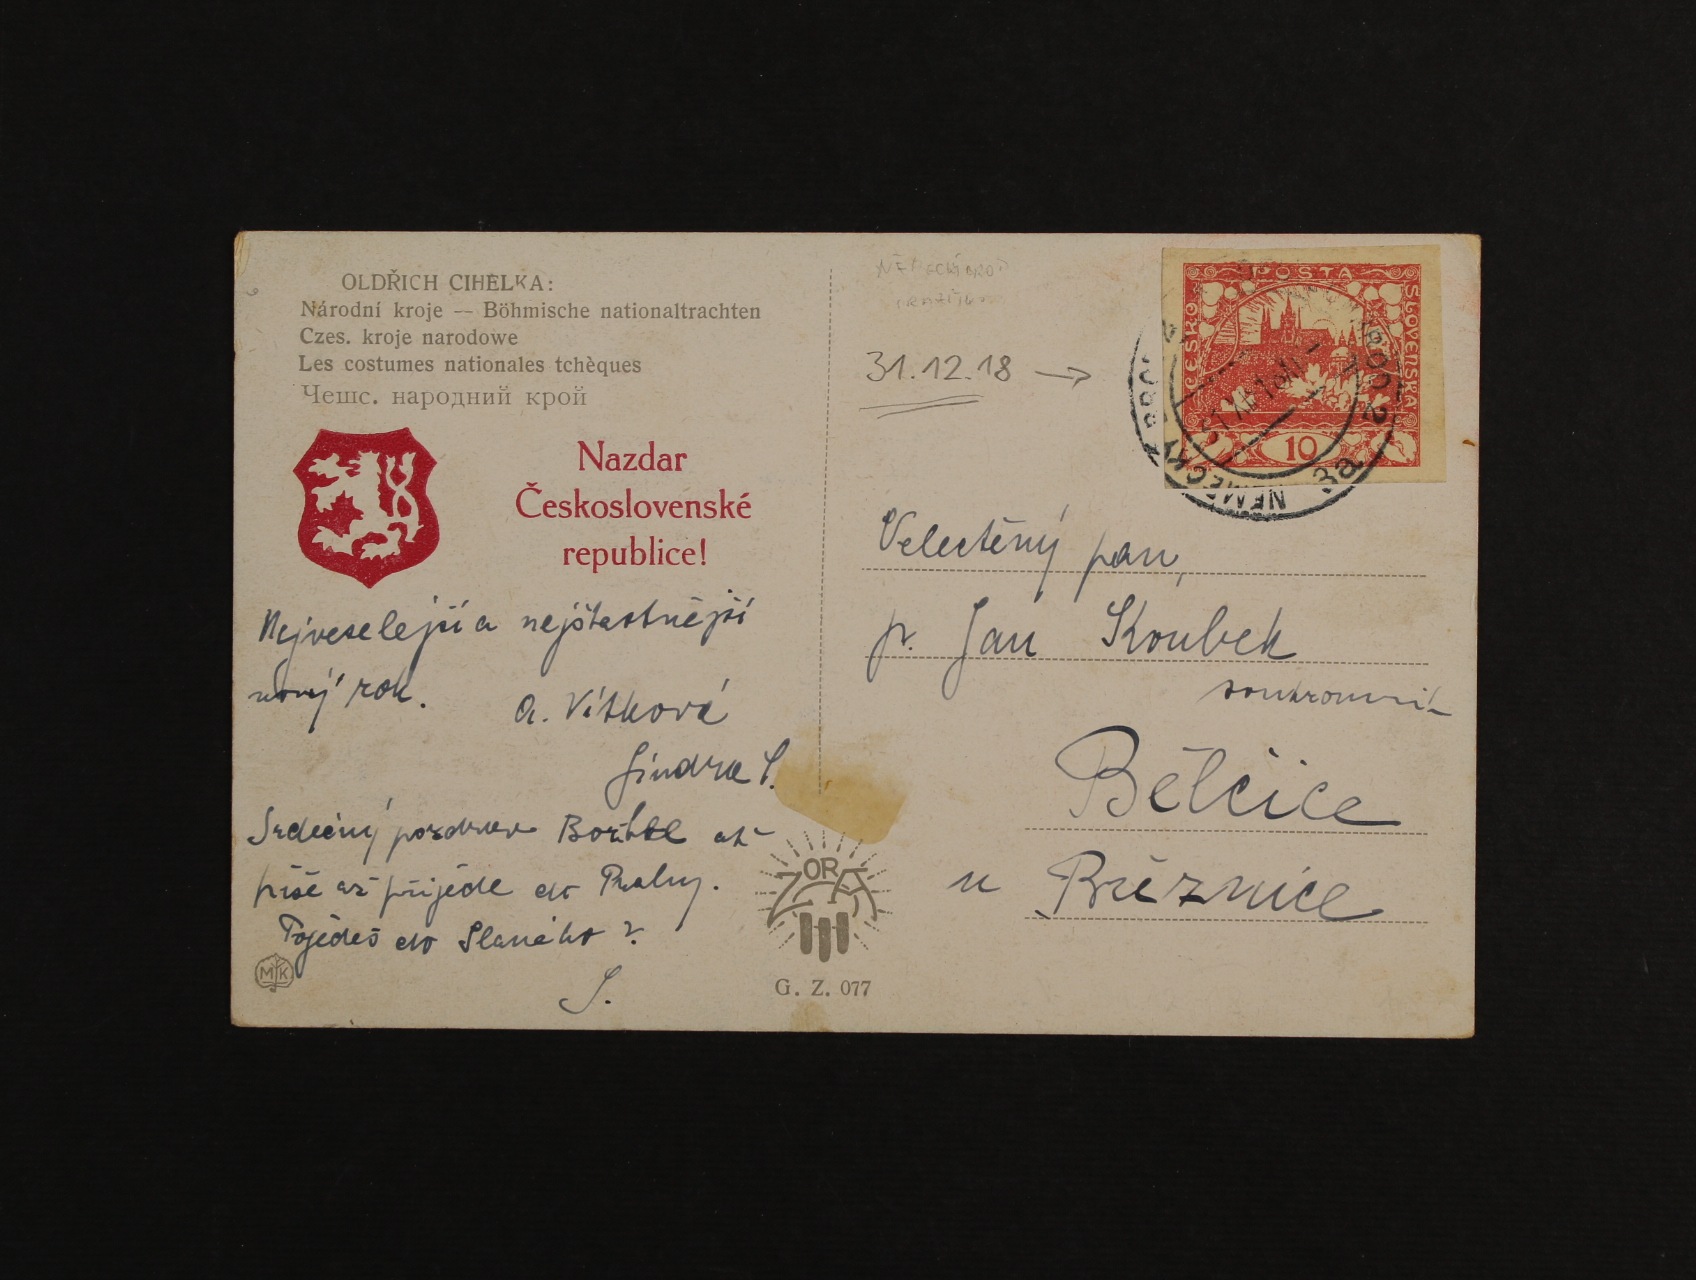 OLDŘICH CIHELKA:
Národní kroje — Böhmische nationaltrachten
Czes. kroje narodowe
Les costumes nationales tchèques
Чешс. народний крой
Nazdar
Československé
republice!
Nejveselejší a nejšťastnější
nový rok.
A. Vítková
Jindra S.
Srdečný pozdrav až
píše až přijede do Prahy.
Pojedeš do Slaného?
S.
MJK
ZORA
G. Z. 077
NĚMECKÝ BROD
31.12.18 →
POŠTA
ČESKO
SLOVENSKÁ
10
NĚMECKÝ BROD 2
3a
Velectěný pan,
p. Jan Koubek
soukromník
Bělčice
u Březnice